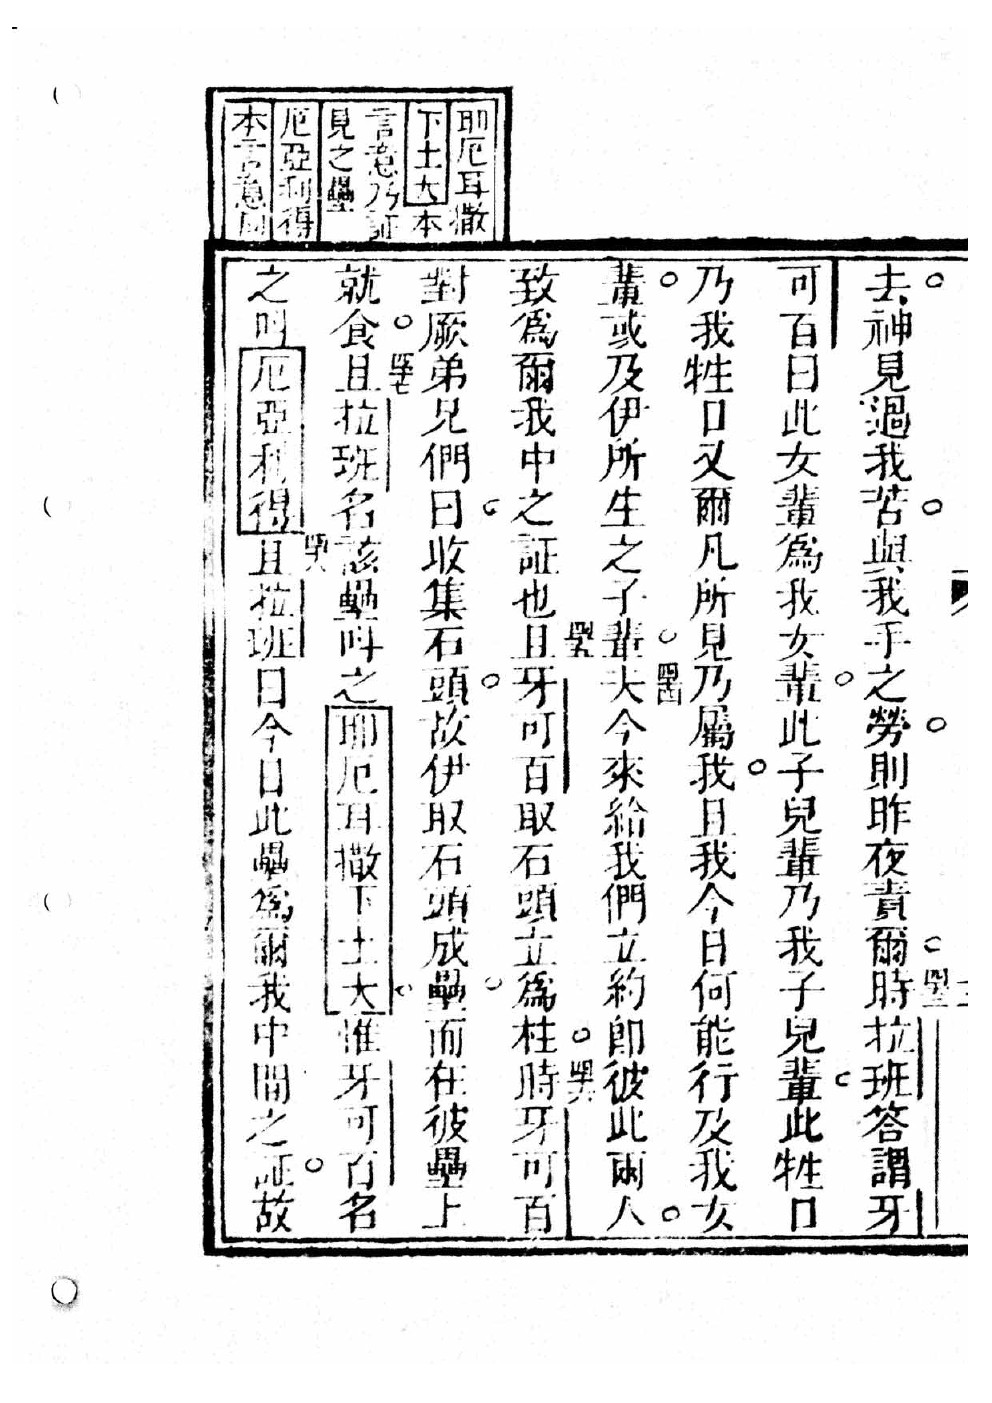 耶厄耳撒
下土大本
言意乃証
見之壘
厄亞利得
本言意同
去神見過我苦與我手之勞則昨夜責爾四二時拉班答謂牙
可百曰此女輩為我女輩此子兒輩乃我子兒輩此牲口
乃我牲口又爾凡所見乃屬我且我今日何能行及我女
輩或及伊所生之子輩四四夫今來給我們立約即彼此兩人
致為爾我中之証也四五且牙可百取石頭立為柱四六時牙可百
對厥弟兄們曰收集石頭故伊取石頭成壘而在彼壘上
就食四七且拉班名該壘呌之耶厄耳撒下土大惟牙可百名
之呌厄亞利得四八且拉班曰今日此壘為爾我中間之証故